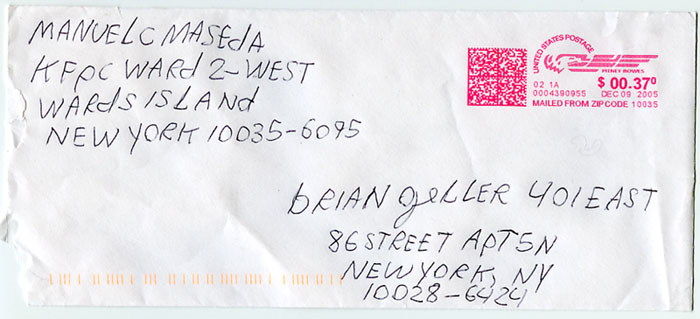 MANUEL C MASEdA
KFPC WARD 2-WEST
WARdS ISLANd
NEW YORK 10035-6095
UNITED STATES POSTAGE
PITNEY BOWES
02 1A
$ 00.37⁰
0004390955 DEC 09 2005
MAILED FROM ZIP CODE 10035
bRIAN gellER 401 EAST
86 STREET APT 5N
NEW YORK, NY
10028-6424